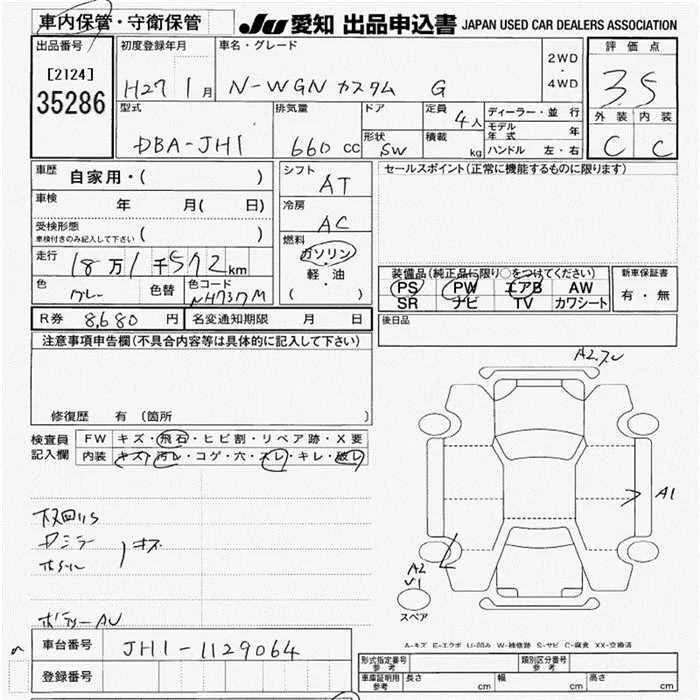 車内保管・守衛保管 JU 愛知 出品申込書 JAPAN USED CAR DEALERS ASSOCIATION
出品番号 初度登録年月 車名・グレード 2WD・4WD 評価点
[2124] 35286 H27 1月 N-WGN カスタム G 3.5
外装 内装
C C
型式 排気量 ドア 定員 ディーラー・並行
DBA-JH1 660 cc 4人 モデル年式 年
形状 積載 ハンドル 左・右
SW kg
車歴 自家用・( ) シフト AT セールスポイント(正常に機能するものに限ります)
車検 年 月( 日) 冷房 AC
受検形態 ( )
車検付きのみ記入して下さい
燃料 ガソリン 軽油 ( )
走行 18万1千572km
装備品(純正品に限り○をつけてください) 新車保証書
PS PW エアB AW 有・無
SR ナビ TV カワシート
色 グレー 色替 色コード NH737M
R券 8,680 円 名変通知期限 月 日 後日品
注意事項申告欄(不具合内容等は具体的に記入して下さい)
修復歴 有 (箇所 )
検査員記入欄 FW キズ・飛石・ヒビ割・リペア跡・X要
内装 キズ・汚レ・コゲ・穴・スレ・キレ・破レ
キズ
A1
A2
スペア
A-キズ E-エクボ U-凹み W-補修跡 S-サビ C-腐食 XX-交換済
車台番号 JH1-1129064
登録番号
形式指定番号 参考 類別区分番号 参考
車庫証明用 参考 長さ cm 幅 cm 高さ cm